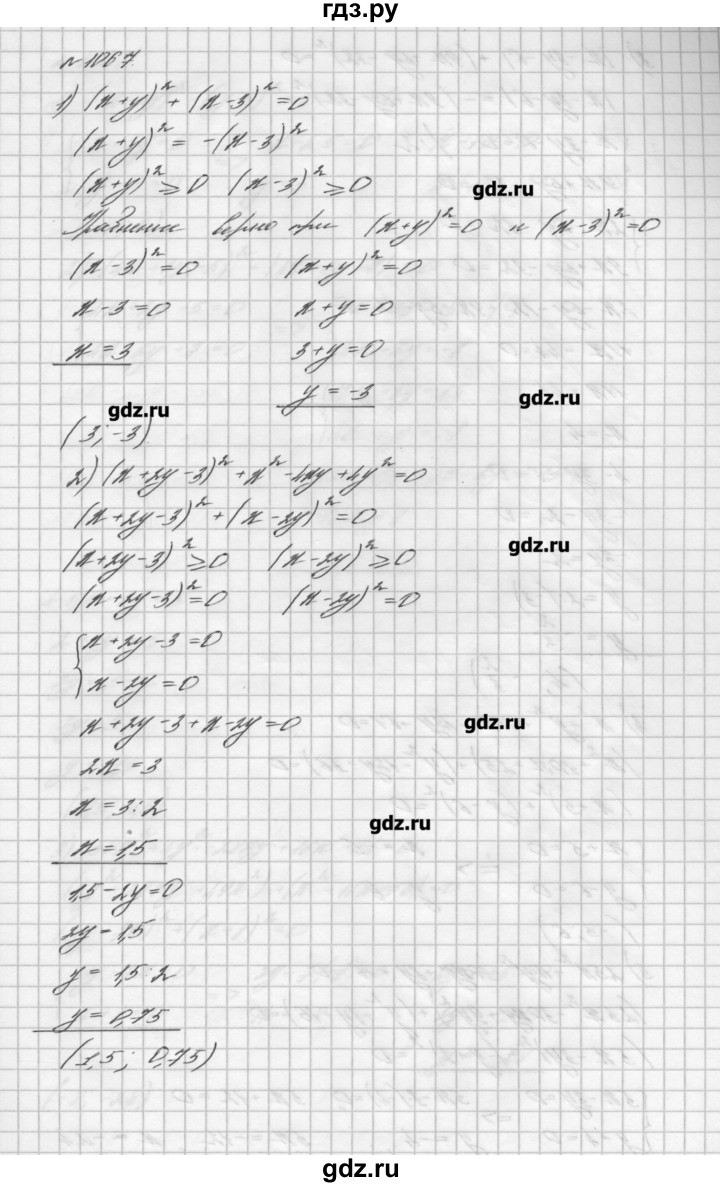 гдз.ру
№1067.
1) (x+y)² + (x-3)² = 0
(x+y)² = -(x-3)²
(x+y)² ≥ 0 (x-3)² ≥ 0
gdz.ru
Уравнение верно при (x+y)² = 0 и (x-3)² = 0
(x-3)² = 0 (x+y)² = 0
x-3=0 x+y=0
x=3 3+y=0
y = -3
gdz.ru
gdz.ru
(3; -3)
2) (x+2y-3)² + x² - 4xy + 4y² = 0
(x+2y-3)² + (x-2y)² = 0
gdz.ru
(x+2y-3)² ≥ 0 (x-2y)² ≥ 0
(x+2y-3)² = 0 (x-2y)² = 0
{x+2y-3=0
x-2y=0
x+2y-3+x-2y=0
gdz.ru
2x = 3
x = 3:2
gdz.ru
x = 1,5
1,5-2y=0
2y=1,5
y = 1,5:2
y = 0,75
(1,5; 0,75)
gdz.ru